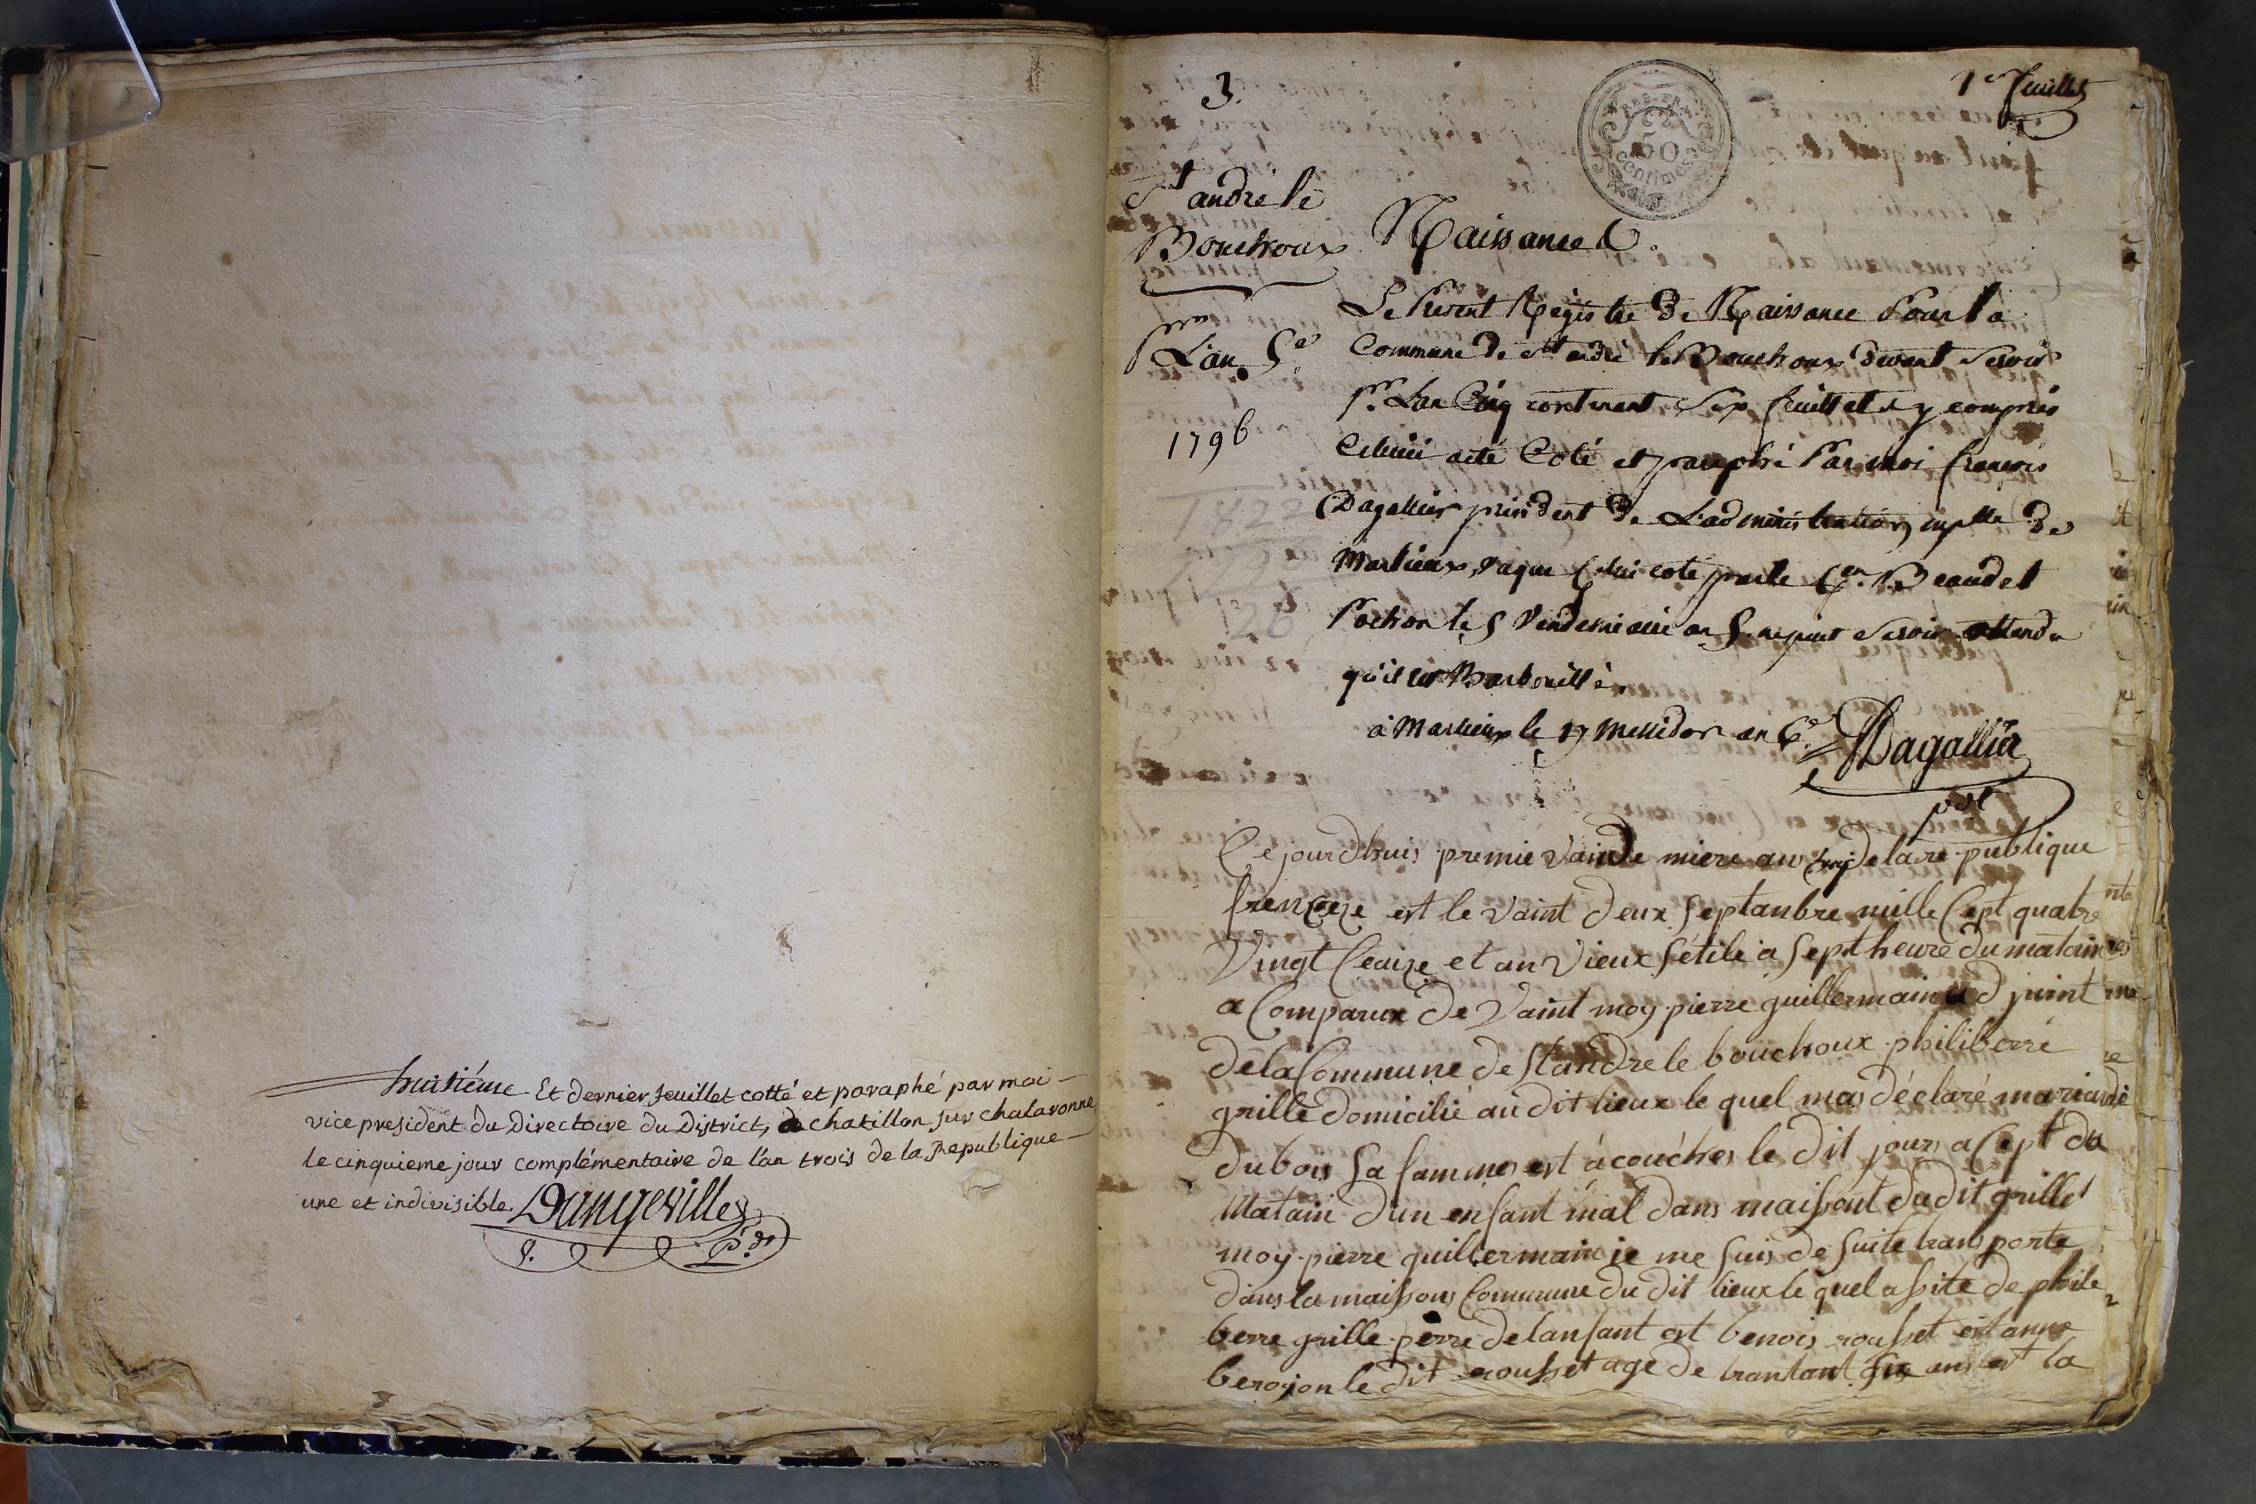 huitiéme Et dernier feuillet cotté et paraphé par moi
vice president du Directoire du District, de chatillon sur chalaronne
le cinquieme jour complémentaire de l'an trois de la Republique
une et indivisible. Dangeville
P.dt
3.
1er feuillet
REP. FRA.
50
centimes
St andré le
Bouchoux
pour
L'an 5e
1796
1822
26
Naissance
Le Present Registre de Naissance Pour la
Commune de St andré le Bouchoux devant servir
pr. L'an Cinq contenant Six feuillets y compris
Celuici acté Coté et paraphé Par moi françois
Dagallier président de L'administration mplle de
Marlieux, vu que Celui coté par le Cen. Beaudet
Pochon le 5 Vendemiaire an 5. ne peut servir attendu
qu'il est Barbouillé
à Marlieux le 17 Messidor an 6e
Dagallier
pdt
Ce jourdhuis premie vainde miere an de la re publique
francoize est le vaint deux Septanbre mille Cept quatre
Vingt Ceaize et an vieux Setile a Sept heure du matain
a Comparux de Vaint moy pierre guillermain ad juint
de la Commune de St andre le bouchoux philiberre
grille domicilié au dit lieux le quel mas déclaré marianne
dubois Sa famme est acouché le dit jours a Cept du
Matain d'un enfant mal dans maisont du dit grillet
moy pierre guillermain je me Suis de Suite transporte
dans la maissons Commune du dit lieux le quel assite de phile
berre grille perre de lanfant est benois rousset est anne
beroion le dit rousset age de trantant six ans et la